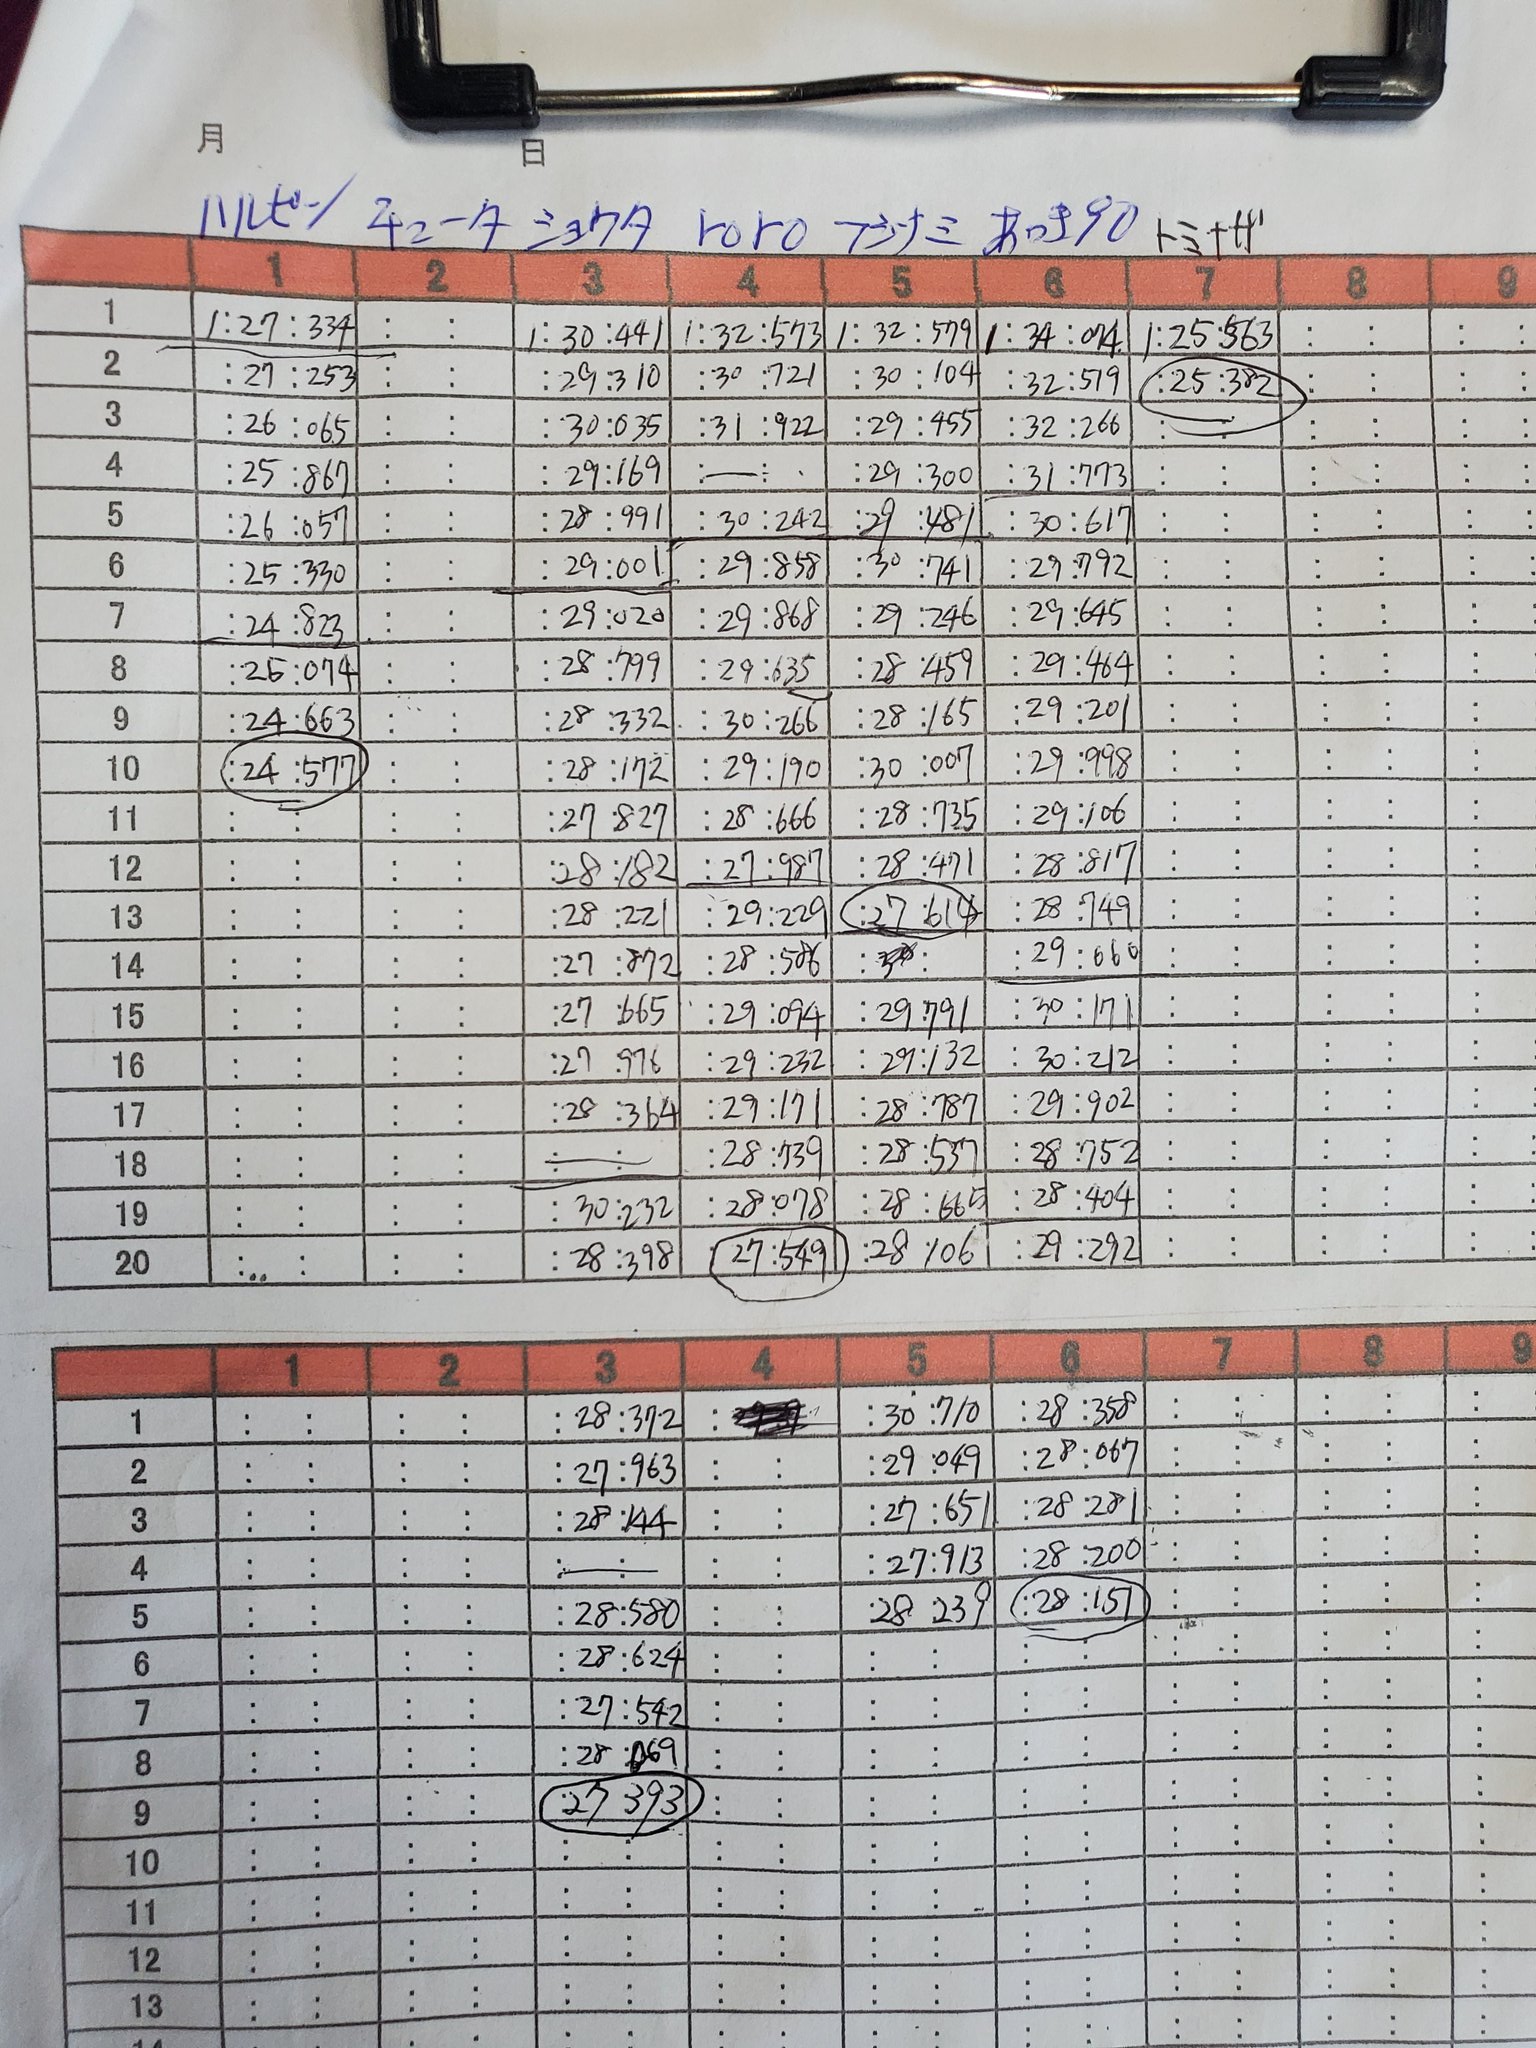 月 日
ハルピン チュータ ショウタ roro フジナミ あっき90 トミナガ
1 2 3 4 5 6 7 8 9
1 1:27:334 : : 1:30:441 1:32:573 1:32:579 1:34:074 1:25:563 : : : :
2 :27:253 : : :29:310 :30:721 :30:104 :32:519 :25:382 : : : :
3 :26:065 : : :30:035 :31:922 :29:455 :32:266 : : : : : :
4 :25:867 : : :29:169 :—: :29:300 :31:773 : : : : : :
5 :26:057 : : :28:991 :30:242 :29:481 :30:617 : : : : : :
6 :25:330 : : :29:001 :29:858 :30:741 :29:792 : : : : : :
7 :24:823 : : :29:020 :29:868 :29:246 :29:645 : : : : : :
8 :25:074 : : :28:799 :29:635 :28:459 :29:464 : : : : : :
9 :24:663 : : :28:332 :30:266 :28:165 :29:201 : : : : : :
10 :24:577 : : :28:172 :29:190 :30:007 :29:998 : : : : : :
11 : : : : :27:827 :28:666 :28:735 :29:106 : : : : : :
12 : : : : :28:182 :27:987 :28:471 :28:817 : : : : : :
13 : : : : :28:221 :29:229 :27:614 :28:749 : : : : : :
14 : : : : :27:872 :28:586 : : :29:060 : : : : : :
15 : : : : :27:665 :29:094 :29:791 :30:171 : : : : : :
16 : : : : :27:976 :29:232 :29:132 :30:212 : : : : : :
17 : : : : :28:364 :29:171 :28:787 :29:902 : : : : : :
18 : : : : :—: :28:739 :28:537 :28:752 : : : : : :
19 : : : : :30:232 :28:078 :28:665 :28:404 : : : : : :
20 : : : : :28:398 :27:549 :28:106 :29:292 : : : : : :
1 2 3 4 5 6 7 8 9
1 : : : : :28:372 : :30:710 :28:358 : : : : : :
2 : : : : :27:963 : : :29:049 :28:067 : : : : : :
3 : : : : :28:144 : : :27:651 :28:281 : : : : : :
4 : : : : :—: : : :27:913 :28:200 : : : : : :
5 : : : : :28:580 : : :28:239 :28:151 : : : : : :
6 : : : : :28:624 : : : : : : : : : : : :
7 : : : : :27:542 : : : : : : : : : : : :
8 : : : : :28:069 : : : : : : : : : : : :
9 : : : : :27:393 : : : : : : : : : : : :
10 : : : : : : : : : : : : : : : : : :
11 : : : : : : : : : : : : : : : : : :
12 : : : : : : : : : : : : : : : : : :
13 : : : : : : : : : : : : : : : : : :